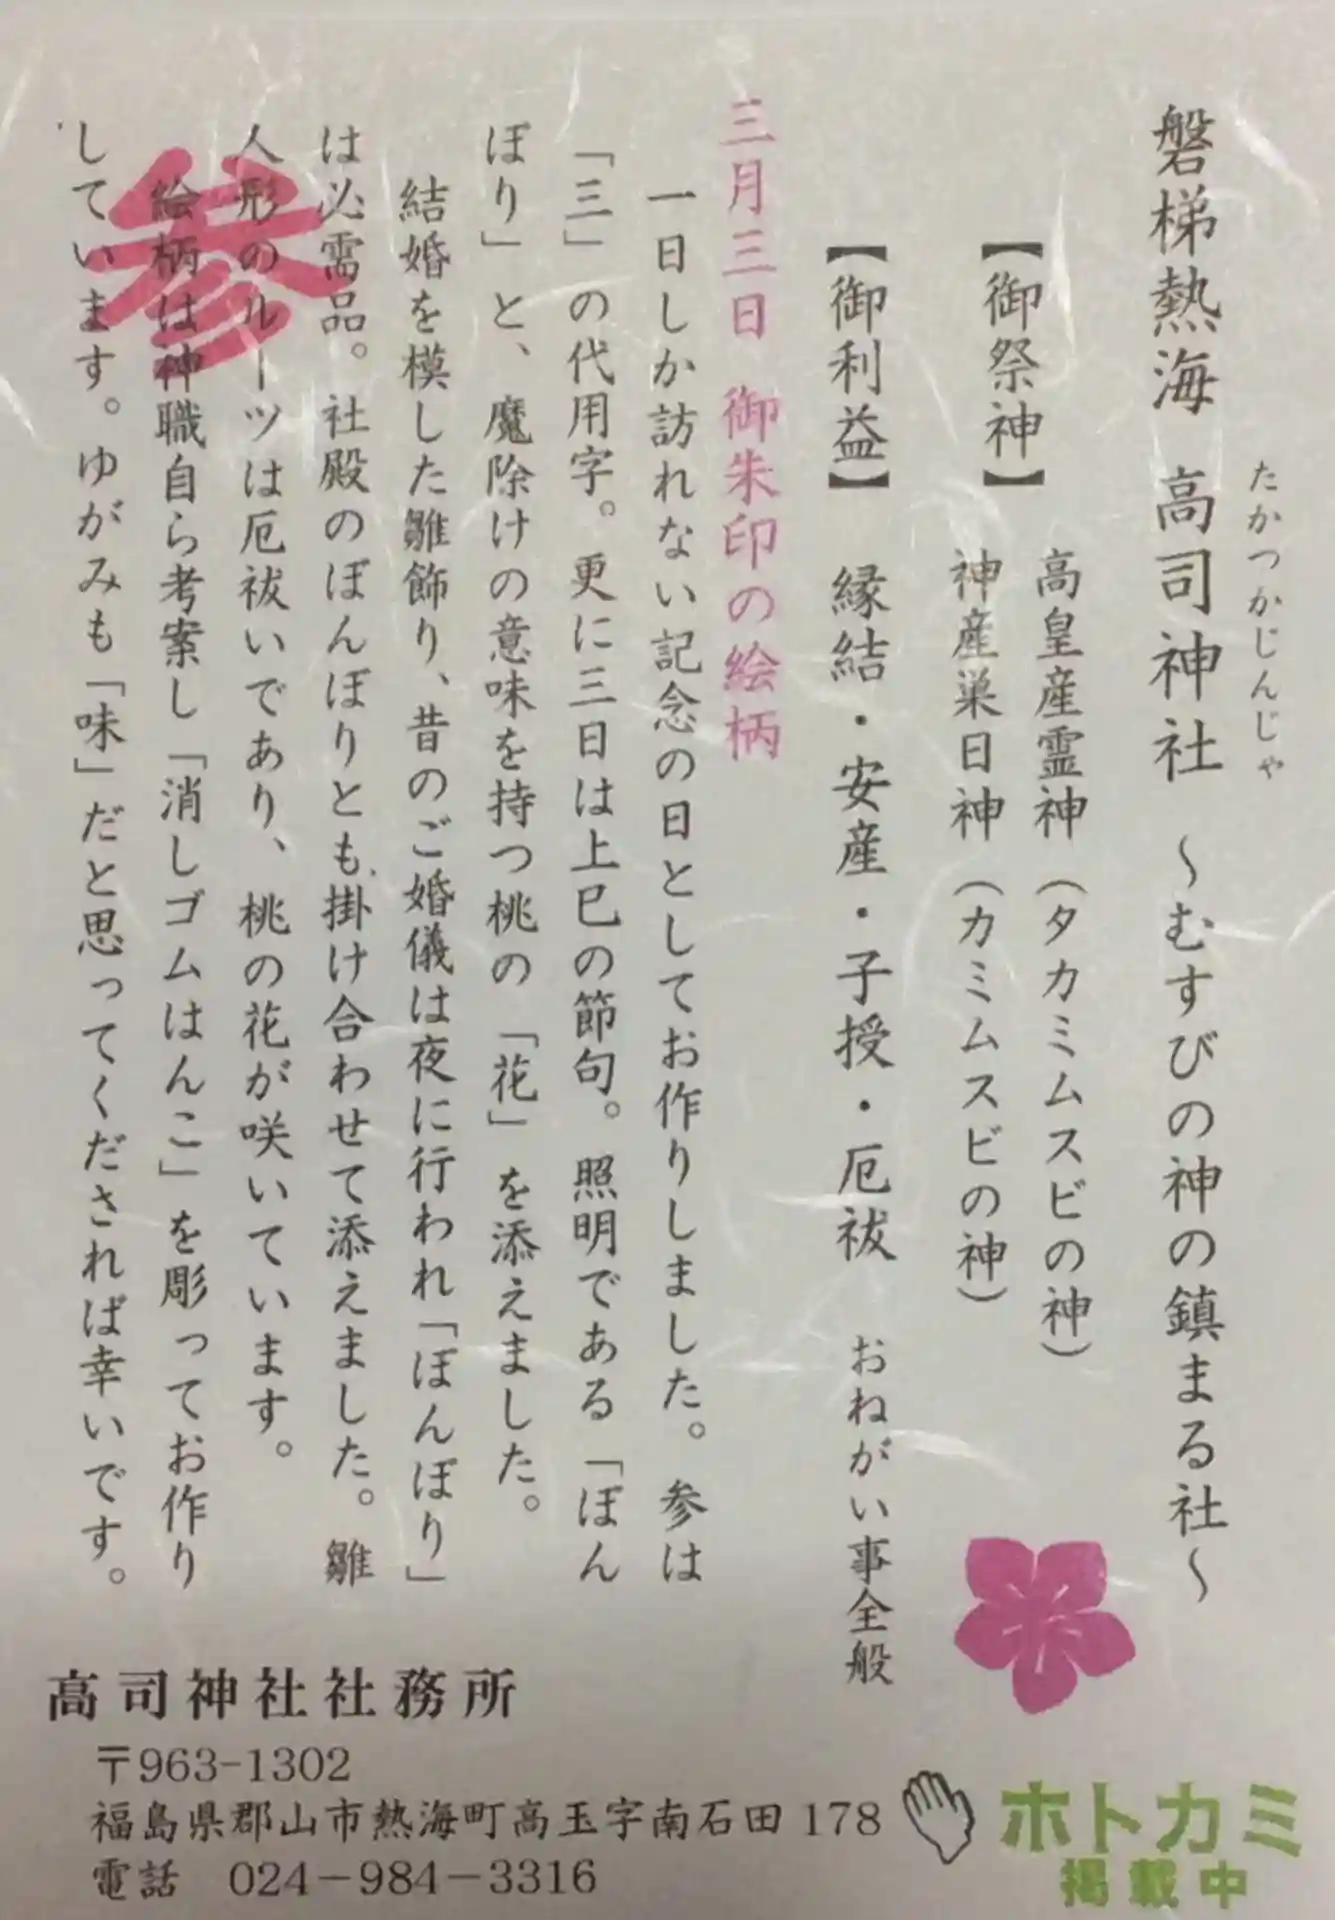 磐梯熱海 高司神社 ～むすびの神の鎮まる社～
たかつかじんじゃ
【御祭神】 高皇産霊神（タカミムスビの神）
神産巣日神（カミムスビの神）
【御利益】 縁結・安産・子授・厄祓 おねがい事全般
三月三日 御朱印の絵柄
一日しか訪れない記念の日としてお作りしました。参は
「三」の代用字。更に三日は上巳の節句。照明である「ぼん
ぼり」と、魔除けの意味を持つ桃の「花」を添えました。
結婚を模した雛飾り、昔のご婚儀は夜に行われ「ぼんぼり」
は必需品。社殿のぼんぼりとも掛け合わせて添えました。雛
人形のルーツは厄祓いであり、桃の花が咲いています。
絵柄は神職自ら考案し「消しゴムはんこ」を彫ってお作り
しています。ゆがみも「味」だと思ってくだされば幸いです。
参
高司神社社務所
〒963-1302
福島県郡山市熱海町高玉字南石田 178
電話 024－984－3316
ホトカミ
掲載中